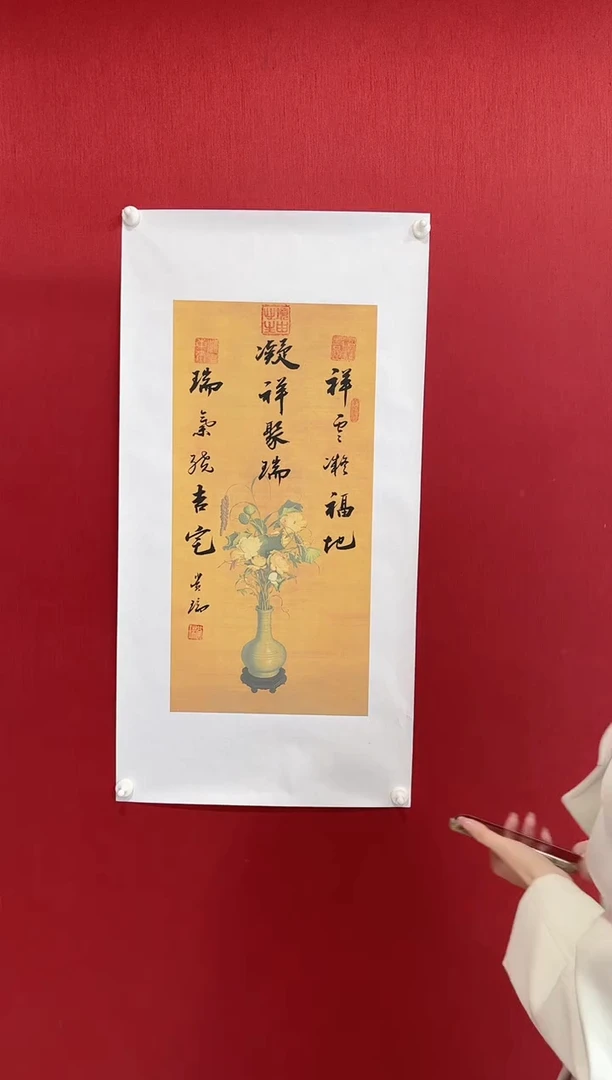 凝祥聚瑞
祥云凝福地
瑞氣繞吉宅